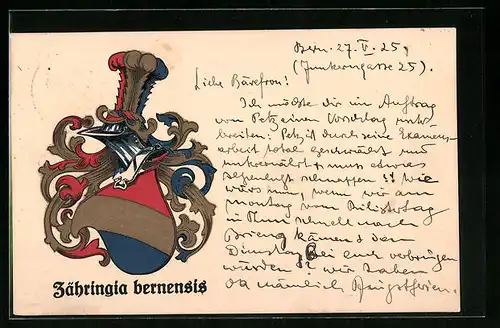 Bern. 27. V. 25.
(Junkerngasse 25).
Liebe Bärefrou!
Ich möchte dir im Auftrag
von Petz einen Vorschlag unter-
breiten: Petz ist durch seine Examens-
arbeit total geschwächt und
unternährt & muss etwas
schnappen !! Wie
wärs nun, wenn wir am
Montag vom Philistertag
in Thun schnell nach
Brienz kämen & den
Dienstag bei euch verbringen
würden ? Wir haben
ja nämlich Pfingstferien.
Zähringia bernensis